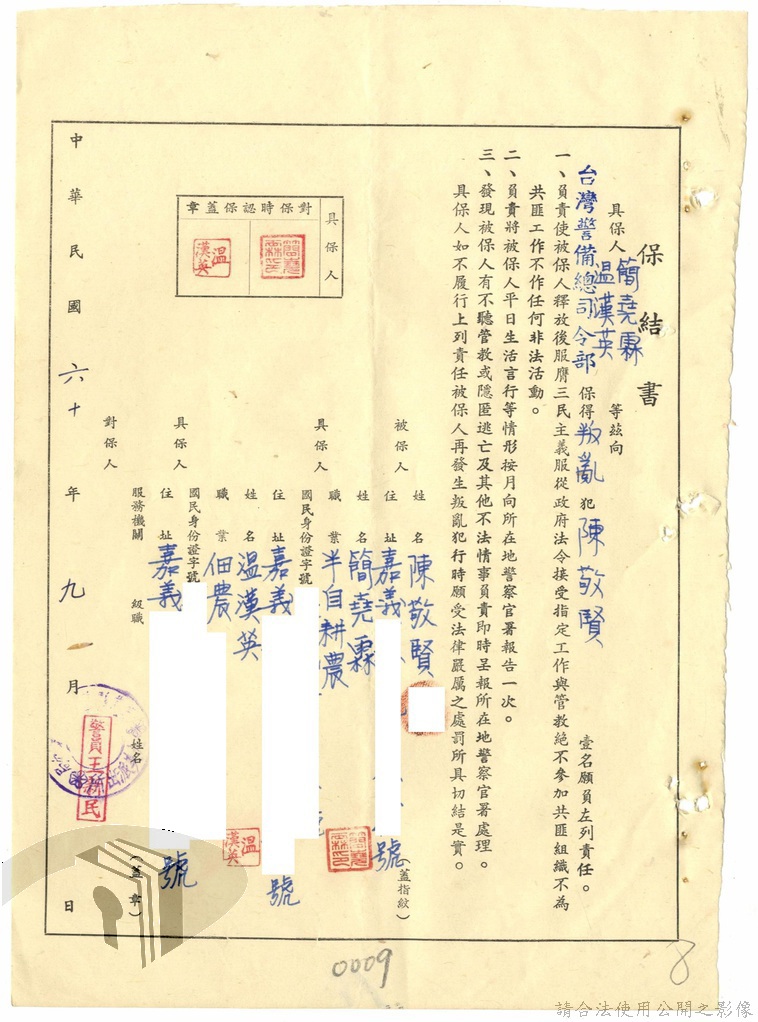 保結書
具保人簡堯霖
溫漢英
等茲向
台灣警備總司令部保得叛亂犯陳敬賢壹名願負左列責任。
一、負責使被保人釋放後服膺三民主義服從政府法令接受指定工作與管教絕不參加共匪組織不為
共匪工作不作任何非法活動。
二、負責將被保人平日生活言行等情形按月向所在地警察官署報告一次。
三、發現被保人有不聽管教或隱匿逃亡及其他不法情事負責即時呈報所在地警察官署處理。
具保人如不履行上列責任被保人再發生叛亂犯行時願受法律嚴厲之處罰所具切結是實。
具保人
對保時認保蓋章
溫漢英
被保人
姓名陳敬賢
住址嘉義
號
(蓋指紋)
具保人
姓名簡堯霖
職業半自耕農
國民身份證字號
住址嘉義
號
具保人
姓名溫漢英
職業佃農
溫漢英
國民身份證字號
住址嘉義
號
對保人
服務機關
級職
姓名
(蓋章)
警員王新民
中華民國六十年九月日
0009
8
請合法使用公開之影像